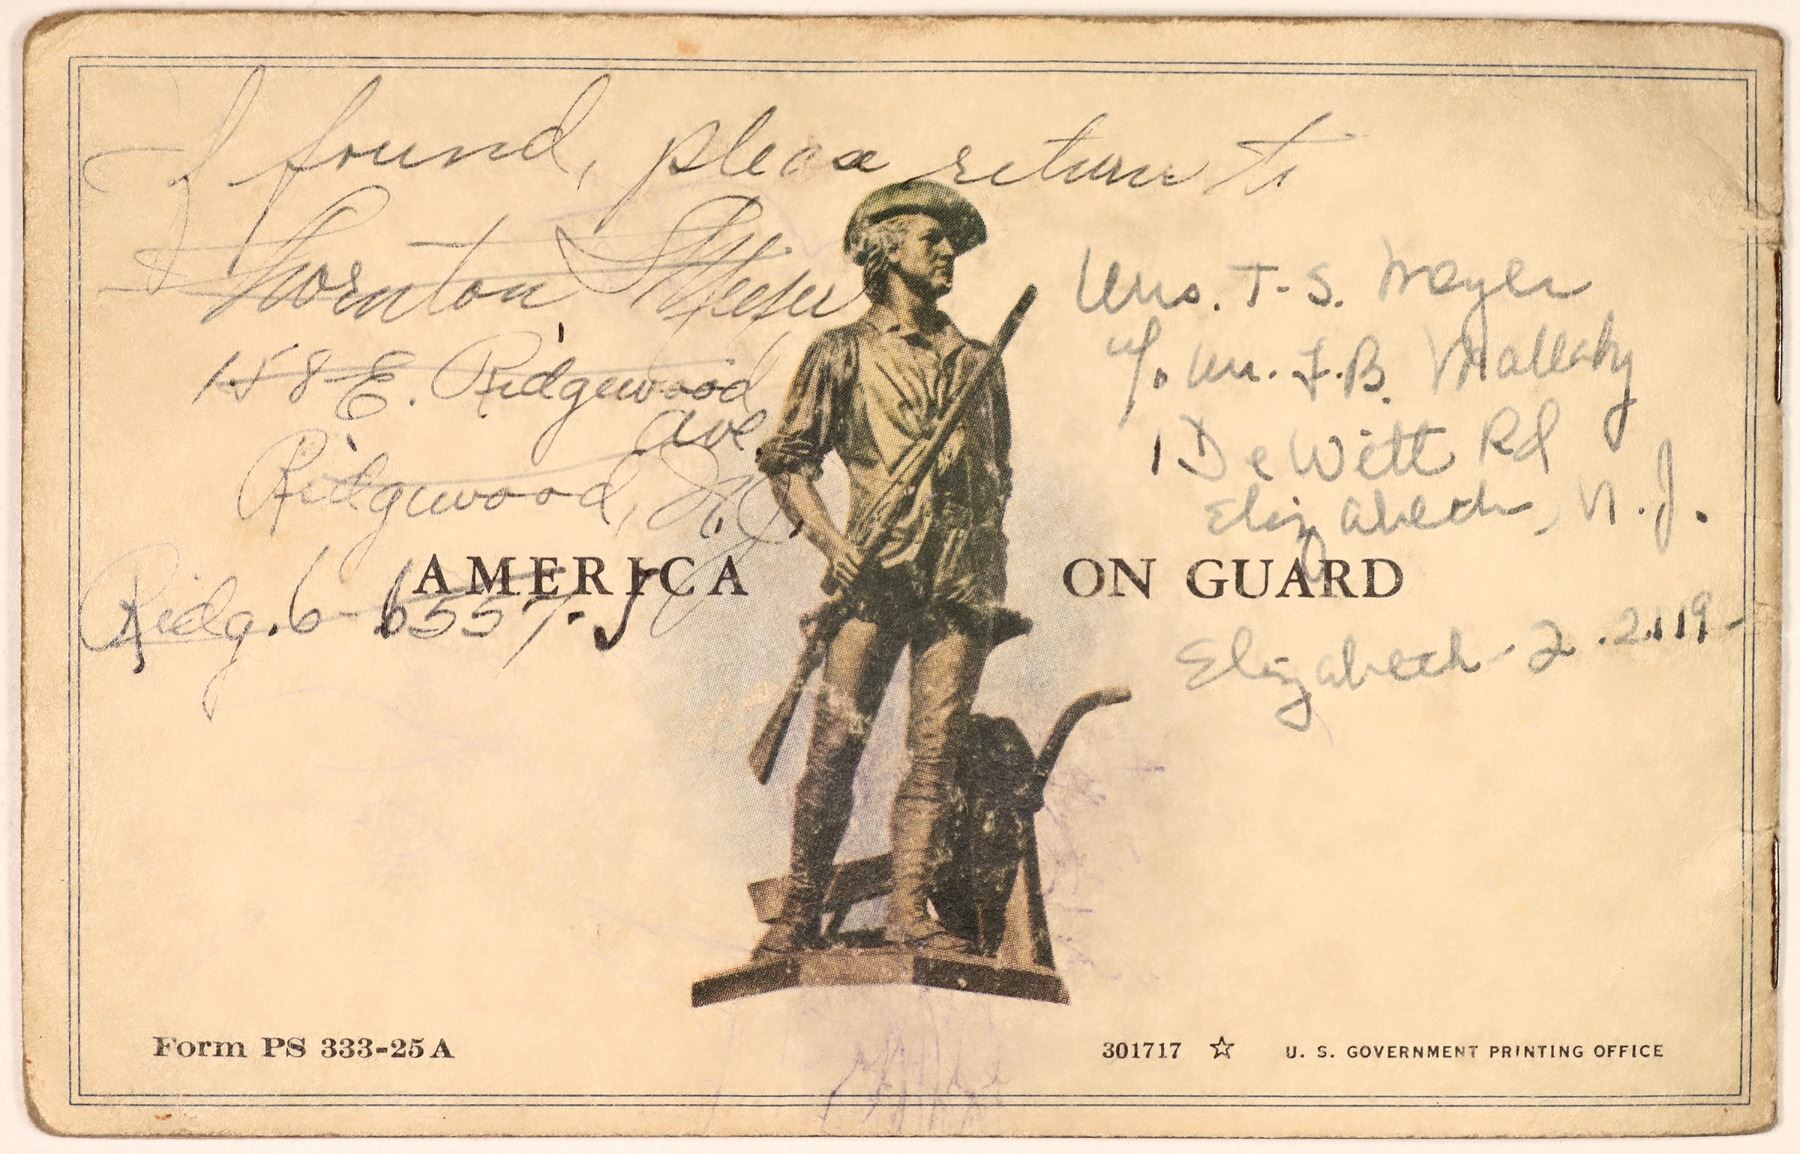 If found, please return to
Thornton
158 E. Ridgewood
Ave
Ridgewood, N.J.
Ridg. 6-6557-J
Mrs. T. S. Meyer
c/o Mr. F. B. Mallaby
1 DeWitt Rd
Elizabeth, N.J.
Elizabeth-2.2119-
AMERICA ON GUARD
Form PS 333-25A
301717 ☆ U. S. GOVERNMENT PRINTING OFFICE